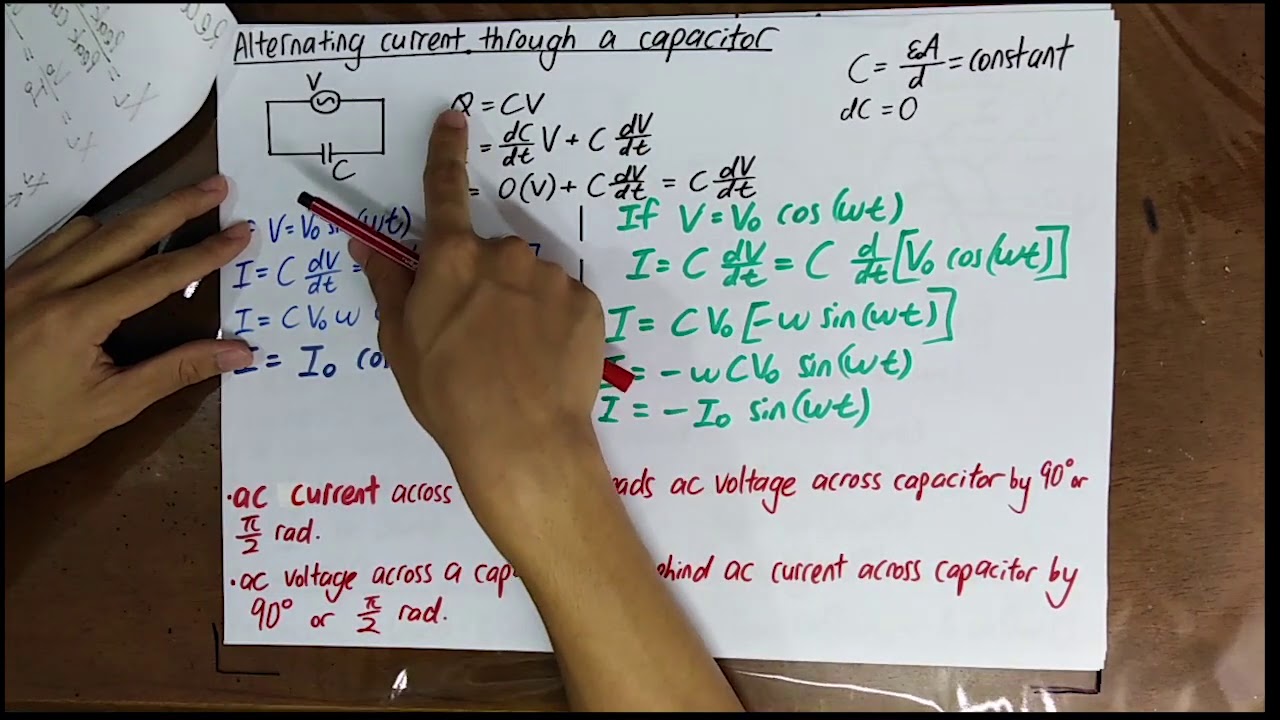 Alternating current through a capacitor
C = ε₀A/d = constant
dC = 0
V
C
Q = CV
= dC/dt V + C dV/dt
= 0(V) + C dV/dt = C dV/dt
V = V₀ sin(ωt)
I = C dV/dt =
I = C V₀ ω
I = I₀
If V = V₀ cos(ωt)
I = C dV/dt = C d/dt [V₀ cos(ωt)]
I = C V₀ [-ω sin(ωt)]
= -ω C V₀ sin(ωt)
I = - I₀ sin(ωt)
·ac current across ac voltage across capacitor by 90° or
π/2 rad.
·ac voltage across a ac current across capacitor by
90° or π/2 rad.